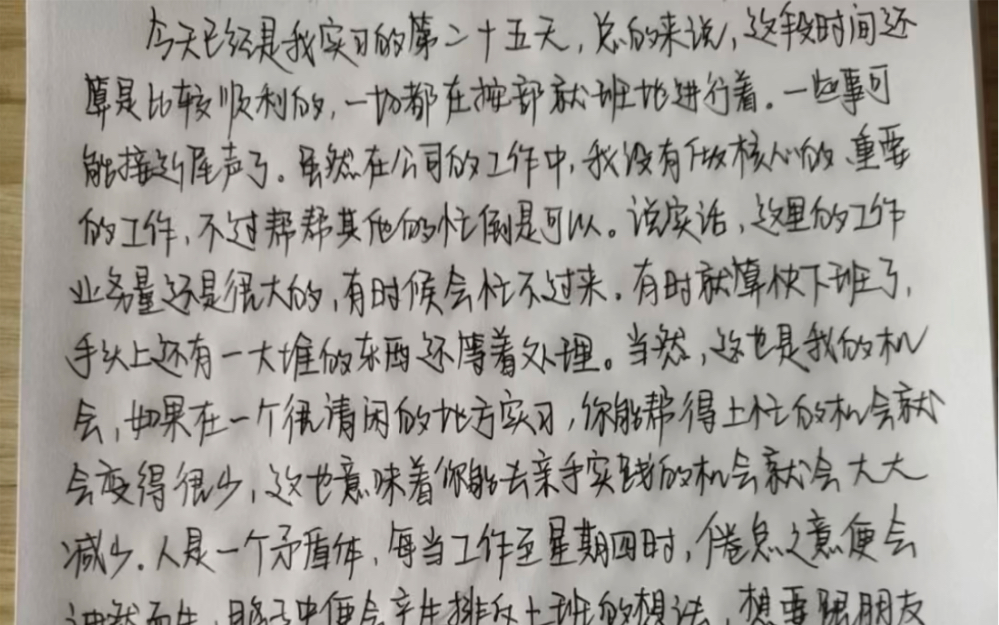 今天已经是我实习的第二十五天，总的来说，这段时间还
算是比较顺利的，一切都在按部就班地进行着。一些事可
能接近尾声了。虽然在公司的工作中，我没有做核心的、重要
的工作，不过帮帮其他的忙倒是可以。说实话，这里的工作
业务量还是很大的，有时候会忙不过来。有时就算快下班了，
手头上还有一大堆的东西还等着处理。当然，这也是我的机
会，如果在一个很清闲的地方实习，你能帮得上忙的机会就
会变得很少，这也意味着你能去亲手实践的机会就会大大
减少。人是一个矛盾体，每当工作至星期四时，倦怠之意便会
油然而生，脑子中便会产生排斥上班的想法，想要跟朋友